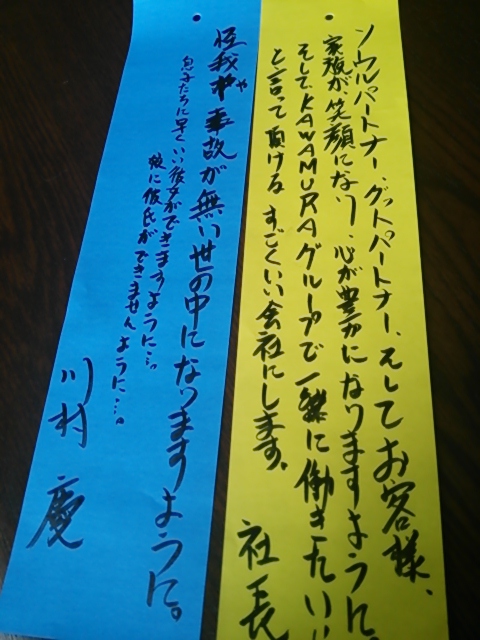 ソウルパートナー、グットパートナー、そしてお客様、
家族が、笑顔になり、心が豊かになりますように。
そして、KAWAMURAグループで一緒に働きたい!
と言って頂ける、すごくいい会社にします。
社長
怪我や事故が無い世の中になりますように。
や
息子たちに早く、いい彼女ができますように…。
娘に彼氏ができませんように…。
川村 慶